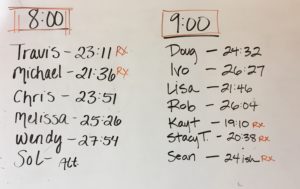 8:00
Travis - 23:11 RX
Michael - 21:36 RX
Chris - 23:51
Melissa - 25:26
Wendy - 27:54
Sol - Alt.
9:00
Doug - 24:32
Ivo - 26:27
Lisa - 21:46
Rob - 26:04
Kayt - 19:10 RX
Stacy T. - 20:38 RX
Sean - 24ish RX